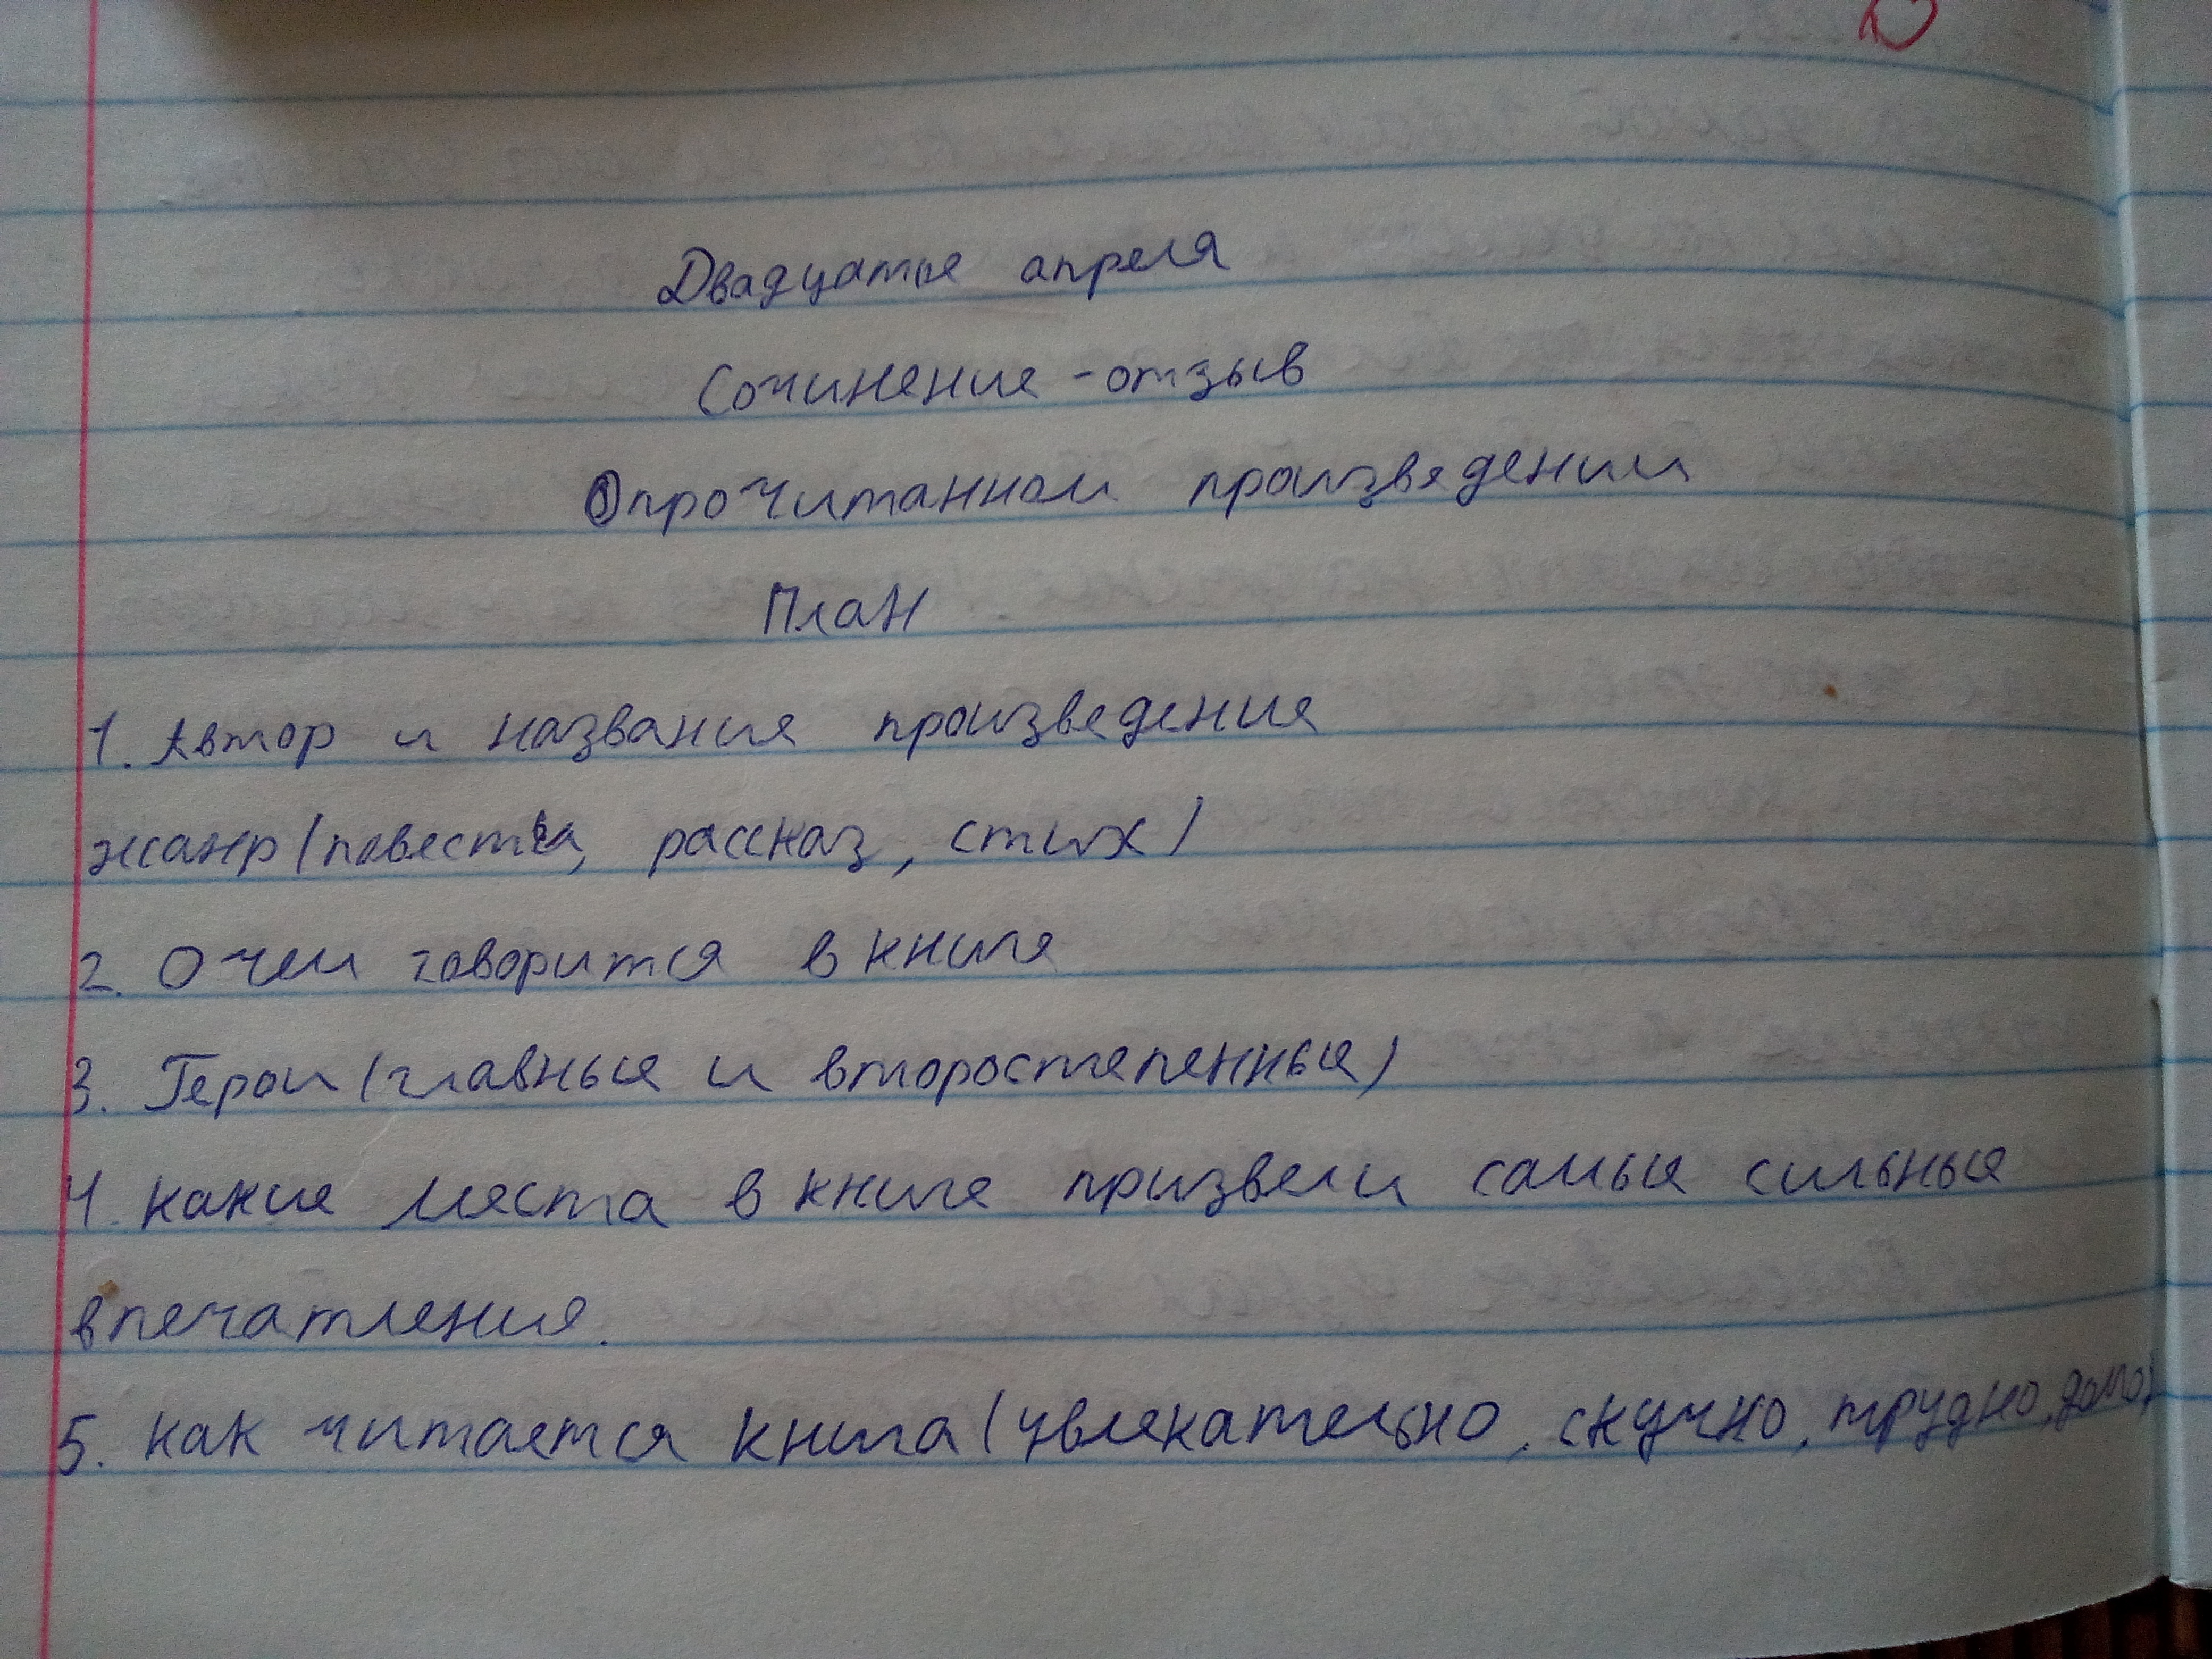 Двадцатое апреля
Сочинение-отзыв
О прочитанном произведении
План
1. Автор и названия произведения
жанр (повесть, рассказ, стих)
2. О чем говорится в книге
3. Герои (главные и второстепенные)
4. какие места в книге призвели самые сильные
впечатления.
5. как читается книга (увлекательно, скучно, трудно,